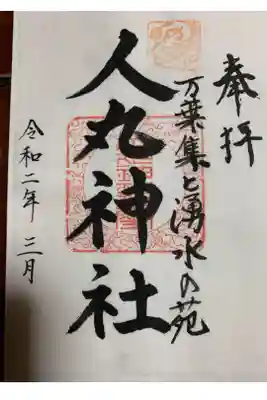 奉拝
万葉集と湧水の苑
人丸神社
令和二年 三月